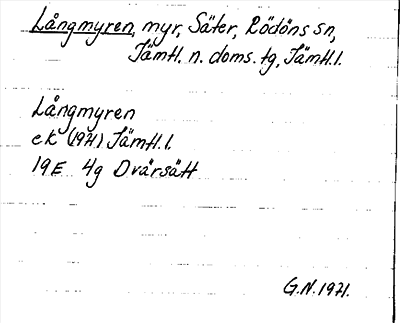 Långmyren, myr, Säter, Rödöns sn,
Jämtl. n. doms. tg, Jämtl. l.
Långmyren
ek (1971) Jämtl. l.
19E 4g Dvärsätt
G.N. 1971.